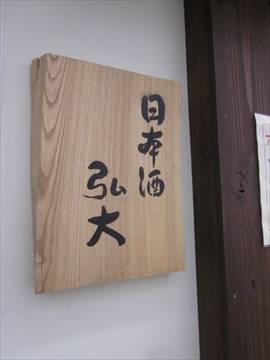 日本酒
弘大